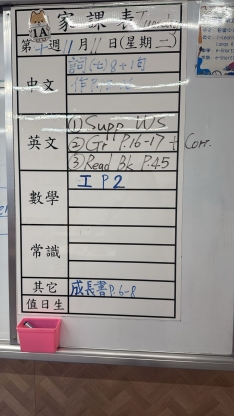 家課表
1A
第十週 11月11日(星期二)
中文 詞(七)8÷1句
作P.
英文 ① Supp. WS
② Gr P.16-17 ÷ Corr.
③ Read Bk P.45
數學 工 P2
常識
其它 成長書P.6-8
值日生